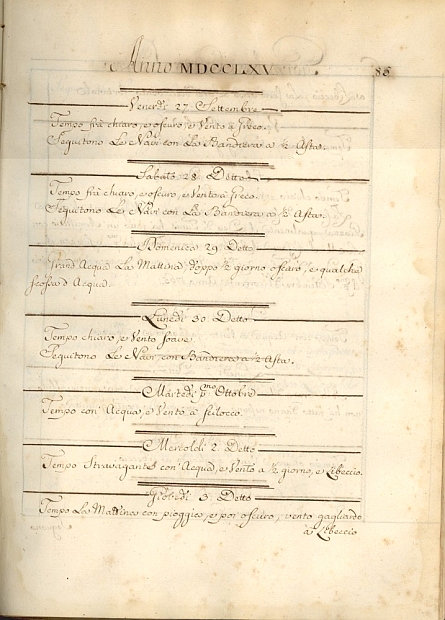 Anno MDCCLXV
86
Venerdi 27 Settembre
Tempo frà chiaro, e oscuro, e Vento à Greco.
Seguitono Le Navi con La Bandiera a ½ Asta.
Sabato 28 Detto
Tempo frà chiaro, e oscuro, e Vento à Greco.
Seguitono Le Navi con La Bandiera a ½ Asta.
Domenica 29 Detto
Grand'Acqua La Mattina, doppo ½ giorno oscuro, e qualche
scossa d'Acqua.
Lunedi 30 Detto
Tempo chiaro, e Vento soave
Seguitono Le Navi con Bandiera a ½ Asta.
Martedi pmo Ottobre
Tempo con Acqua, e Vento à Scilocco.
Mercoldi 2 Detto
Tempo Stravagante con Acqua, e Vento a ½ giorno, e Libeccio.
Giovedi 3 Detto
Tempo La Mattina con pioggie, e poi oscuro, vento gagliardo
à Libeccio